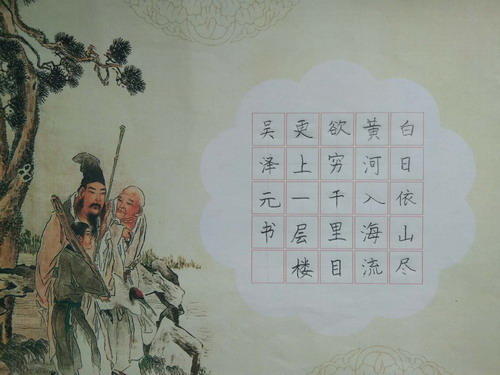 白日依山尽
黄河入海流
欲穷千里目
更上一层楼
吴泽元书